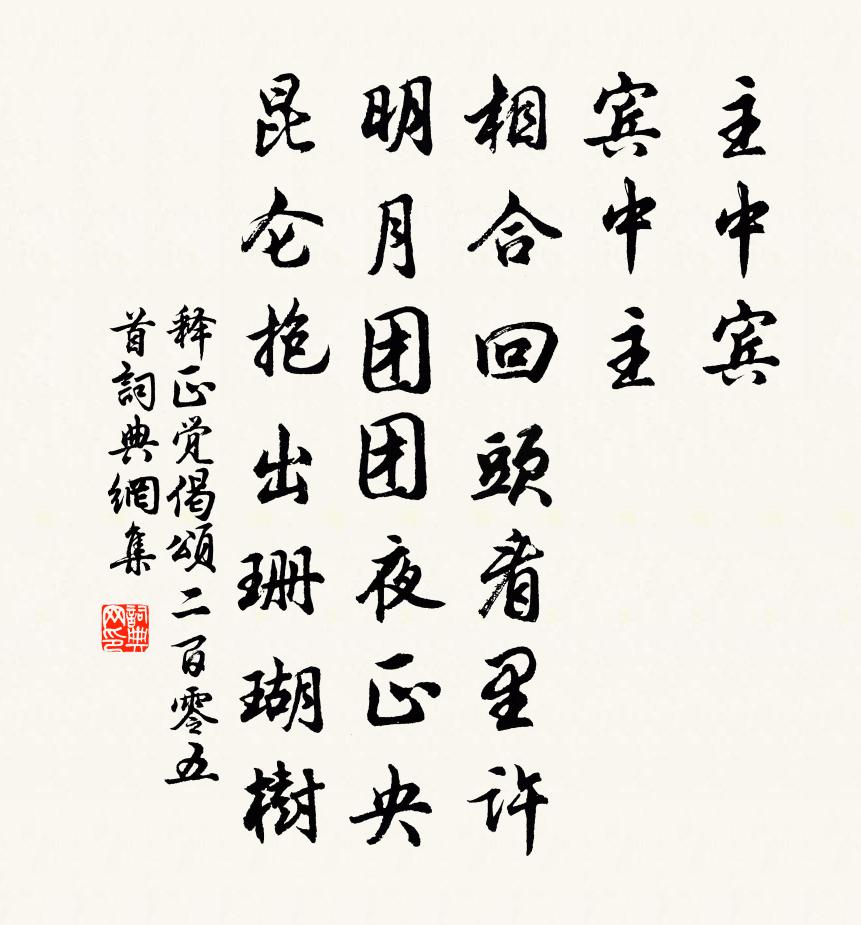 主中宾
宾中主
相合回頭看里许
明月团团夜正央
昆仑抱出珊瑚樹
释正觉偈頌二百零五
首詞典網集
詞典
网印